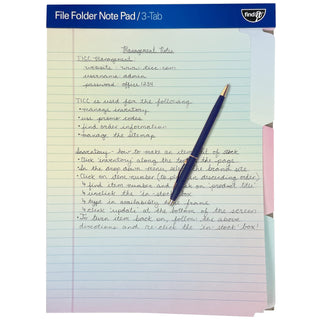 File Folder Note Pad / 3-Tab
find it
Management Notes
TICC Management
website: www.ticc.com
username: admin
password: office1234
TICC is used for the following
• manage inventory
• use promo codes
• find order information
• manage the sitemap
Inventory - how to make an item out of stock
• Click 'inventory' along the top of the page
• In the drop down menu, select the brand site
• Click on item number (to place in descending order)
↳ find item number and click on 'product title'
↳ unclick the 'in stock' box
↳ type in availability time frame
↳ click 'update' at the bottom of the screen
• To turn item back on, follow the above
directions and re-click the 'in-stock' box!